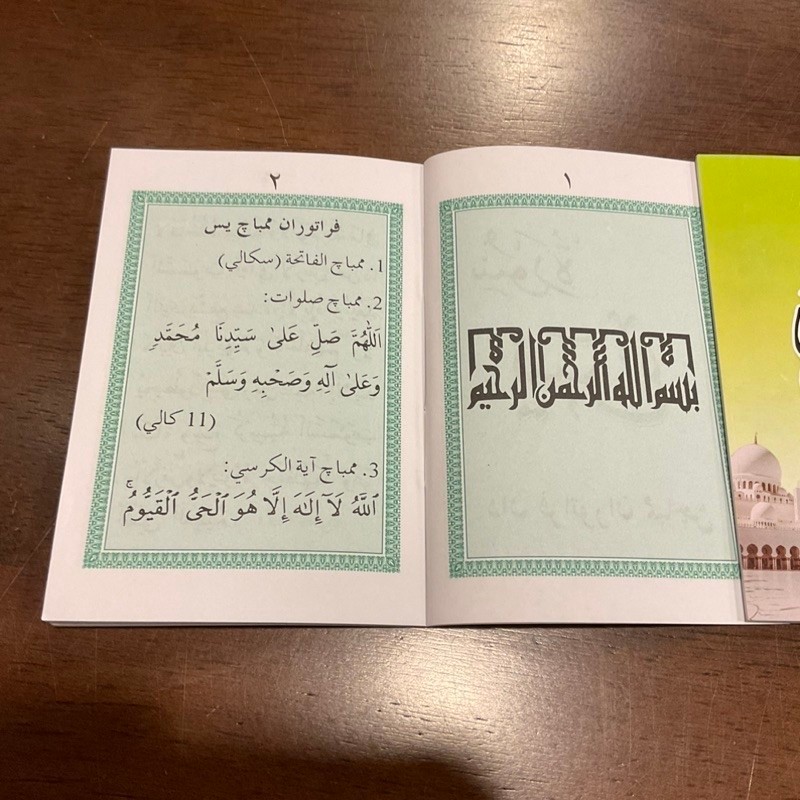 ١
بسم الله الرحمن الرحيم
٢
فراتوران ممباچ يس
1. ممباچ الفاتحة (سكالي)
2. ممباچ صلوات:
اَللّٰهُمَّ صَلِّ عَلىٰ سَيِّدِنَا مُحَمَّدٍ
وَعَلىٰ آلِهِ وَصَحْبِهِ وَسَلَّمْ
(11 كالي)
3. ممباچ آية الكرسي:
ٱللَّهُ لَآ إِلَـٰهَ إِلَّا هُوَ ٱلْحَىُّ ٱلْقَيُّومُ ۚ